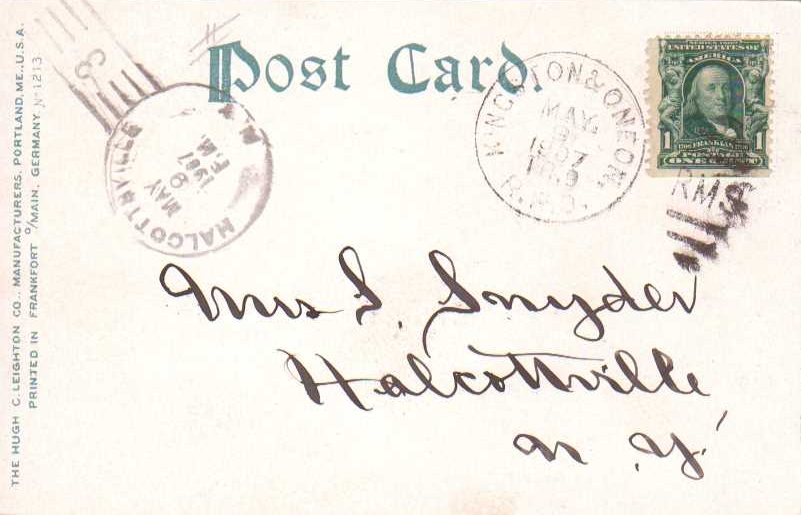 THE HUGH C. LEIGHTON CO., MANUFACTURERS, PORTLAND, ME., U.S.A.
PRINTED IN FRANKFORT o/MAIN, GERMANY. No 1213
Post Card.
3
HALCOTTSVILLE
N.Y.
MAY
8
P.M.
1907
KINGSTON & ONEON.
MAY
8
1907
R.P.O.
RMS
SERIES 1902
UNITED STATES OF
AMERICA
1 1
1706 FRANKLIN 1790
POSTAGE
ONE CENT
Mrs S. Snyder
Halcottville
N. Y.